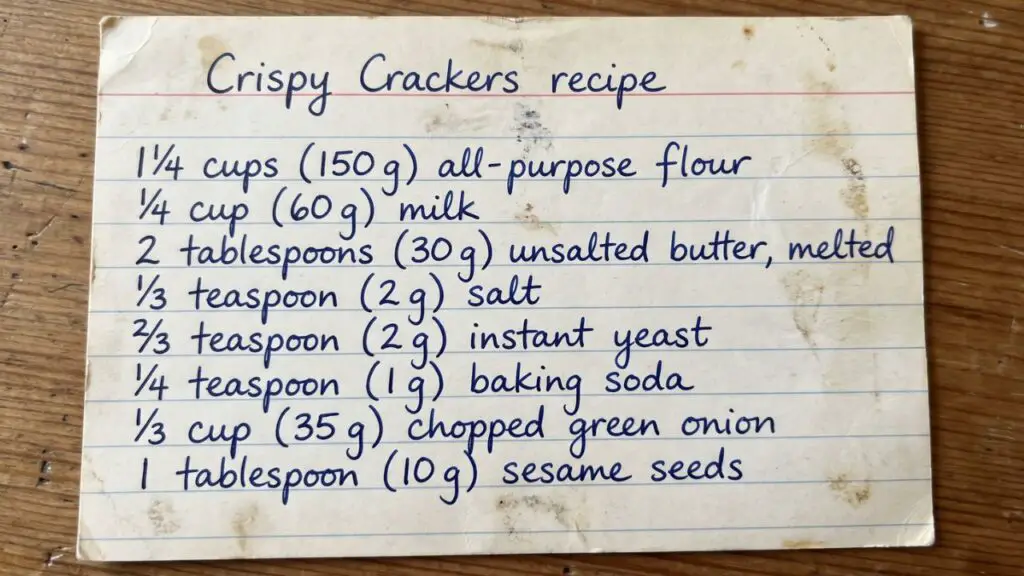 Crispy Crackers recipe
1¼ cups (150 g) all-purpose flour
¼ cup (60 g) milk
2 tablespoons (30 g) unsalted butter, melted
⅓ teaspoon (2 g) salt
⅔ teaspoon (2 g) instant yeast
¼ teaspoon (1 g) baking soda
⅓ cup (35 g) chopped green onion
1 tablespoon (10 g) sesame seeds